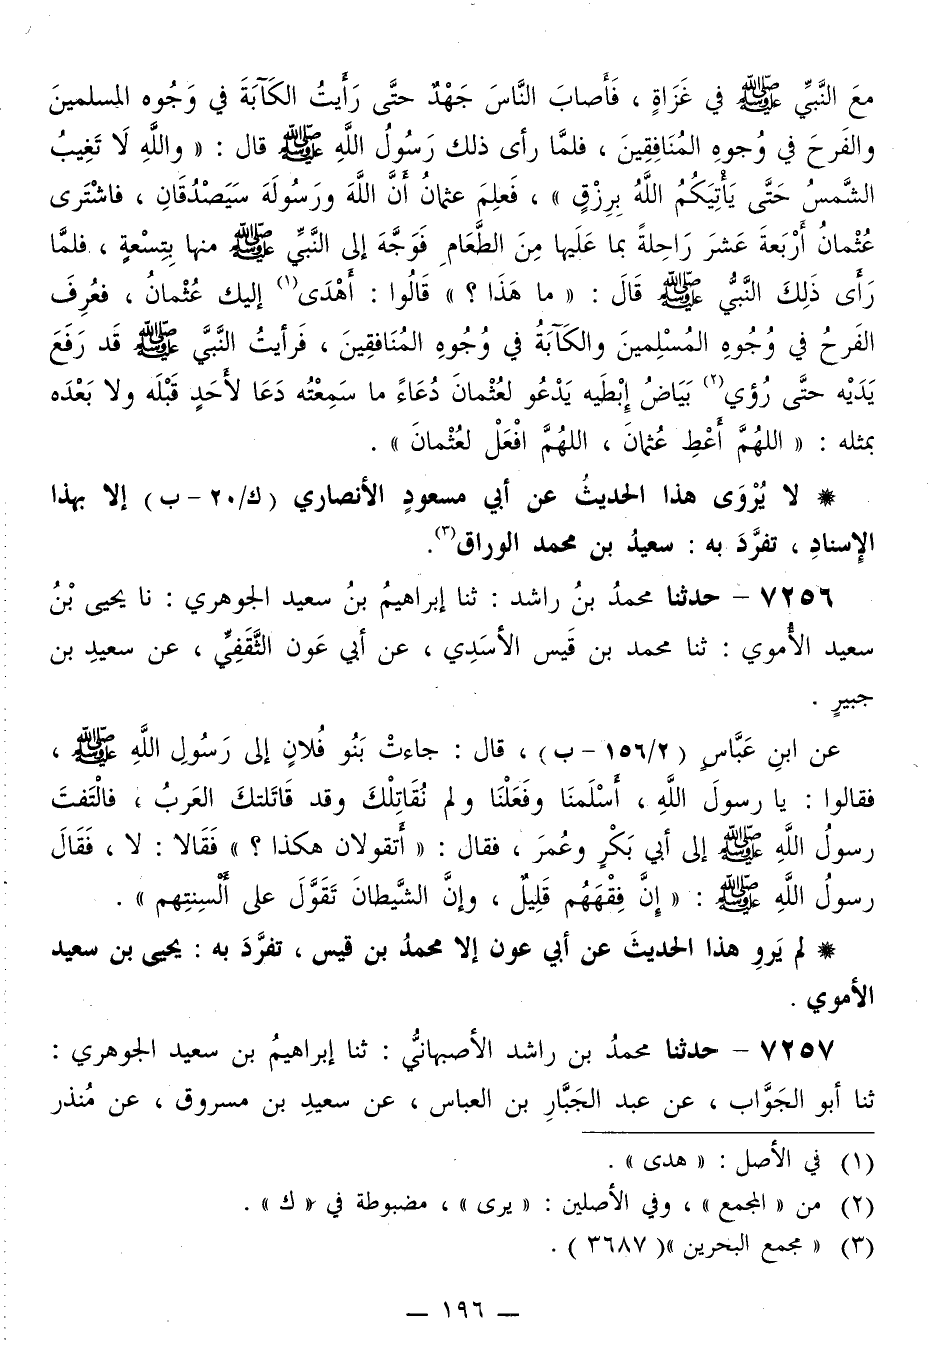 معَ النَّبِيِّ ﷺ في غَزَاةٍ ، فَأَصابَ النَّاسَ جَهْدٌ حتَّى رَأَيتُ الكَآبَةَ في وَجُوه المسلمينَ
والفَرحَ في وُجوهِ المُنَافِقِينَ ، فلمَّا رأى ذلك رَسُولُ اللَّهِ ﷺ قال : « واللَّهِ لَا تَغِيبُ
الشَّمسُ حَتَّى يَأْتِيَكُمُ اللَّهُ بِرِزْقٍ » ، فَعلِمَ عثمانُ أَنَّ اللَّهَ ورَسُولَهَ سَيَصْدُقَانِ ، فاشْتَرى
عُثْمانُ أَرْبَعةَ عَشرَ رَاحِلةً بما عَلَيها مِنَ الطَّعَامِ فَوَجَّهَ إلى النَّبيِّ ﷺ منها بِتِسْعةٍ ، فلمَّا
رَأَى ذَلِكَ النَّبيُّ ﷺ قَالَ : « ما هَذَا ؟ » قَالُوا : أَهْدَى(١) إليك عُثْمانُ ، فعُرِفَ
الفَرحُ في وُجُوهِ المُسْلِمينَ والكَآبَةُ في وُجُوهِ المُنَافقِينَ ، فَرأيتُ النَّبيَّ ﷺ قَد رَفَعَ
يَدَيْه حتَّى رُؤي(٢) بَيَاضُ إِبْطَيه يَدْعُو لعُثْمانَ دُعَاءً ما سَمِعْتُه دَعَا لأَحَدٍ قَبْلَه ولا بَعْدَه
بمثله : « اللهُمَّ أَعْطِ عُثمانَ ، اللهُمَّ افْعَلْ لعُثْمانَ » .
* لا يُرْوَى هذا الحديثُ عن أبي مسعودٍ الأنصاري ( ك/٢٠ - ب ) إلا بهذا
الإِسنادِ ، تفرَّدَ به : سعيدُ بن محمد الوراق(٣).
٧٢٥٦ - حدثنا محمدُ بنُ راشد : ثنا إبراهيمُ بنُ سعيد الجوهري : نا يحيى بْنُ
سعيد الأُموي : ثنا محمد بن قَيس الأسَدِي ، عن أبي عَون الثَّقَفِيِّ ، عن سعيدِ بن
جبيرٍ .
عن ابنِ عَبَّاسٍ ( ١٥٦/٢ - ب ) ، قال : جاءتْ بَنُو فُلانٍ إلى رَسُولِ اللَّهِ ﷺ ،
فقالوا : يا رسولَ اللَّهِ ، أَسْلَمنَا وفَعَلْنَا ولم نُقَاتِلْكَ وقد قَاتَلتكَ العَربُ ، فالْتَفتَ
رسولُ اللَّهِ ﷺ إلى أبي بَكْرٍ وعُمرَ ، فقال : « أَتقولان هكذا ؟ » فَقَالا : لا ، فَقَالَ
رسولُ اللَّهِ ﷺ : « إِنَّ فِقْهَهُم قَلِيلٌ ، وإنَّ الشَّيطانَ تَقَوَّلَ على أَلْسِنتِهم » .
* لم يَروِ هذا الحديثَ عن أبي عون إلا محمدُ بن قيس ، تفرَّدَ به : يحيى بن سعيد
الأموي .
٧٢٥٧ - حدثنا محمدُ بن راشد الأصبهانيُّ : ثنا إبراهيمُ بن سعيد الجوهري :
ثنا أبو الجَوَّاب ، عن عبد الجَبَّارِ بن العباس ، عن سعيدِ بن مسروق ، عن مُنذر
(١) في الأصل : « هدى » .
(٢) من « المجمع » ، وفي الأصلين : « يرى » ، مضبوطة في « ك » .
(٣) « مجمع البحرين »( ٣٦٨٧ ) .
— ١٩٦ —